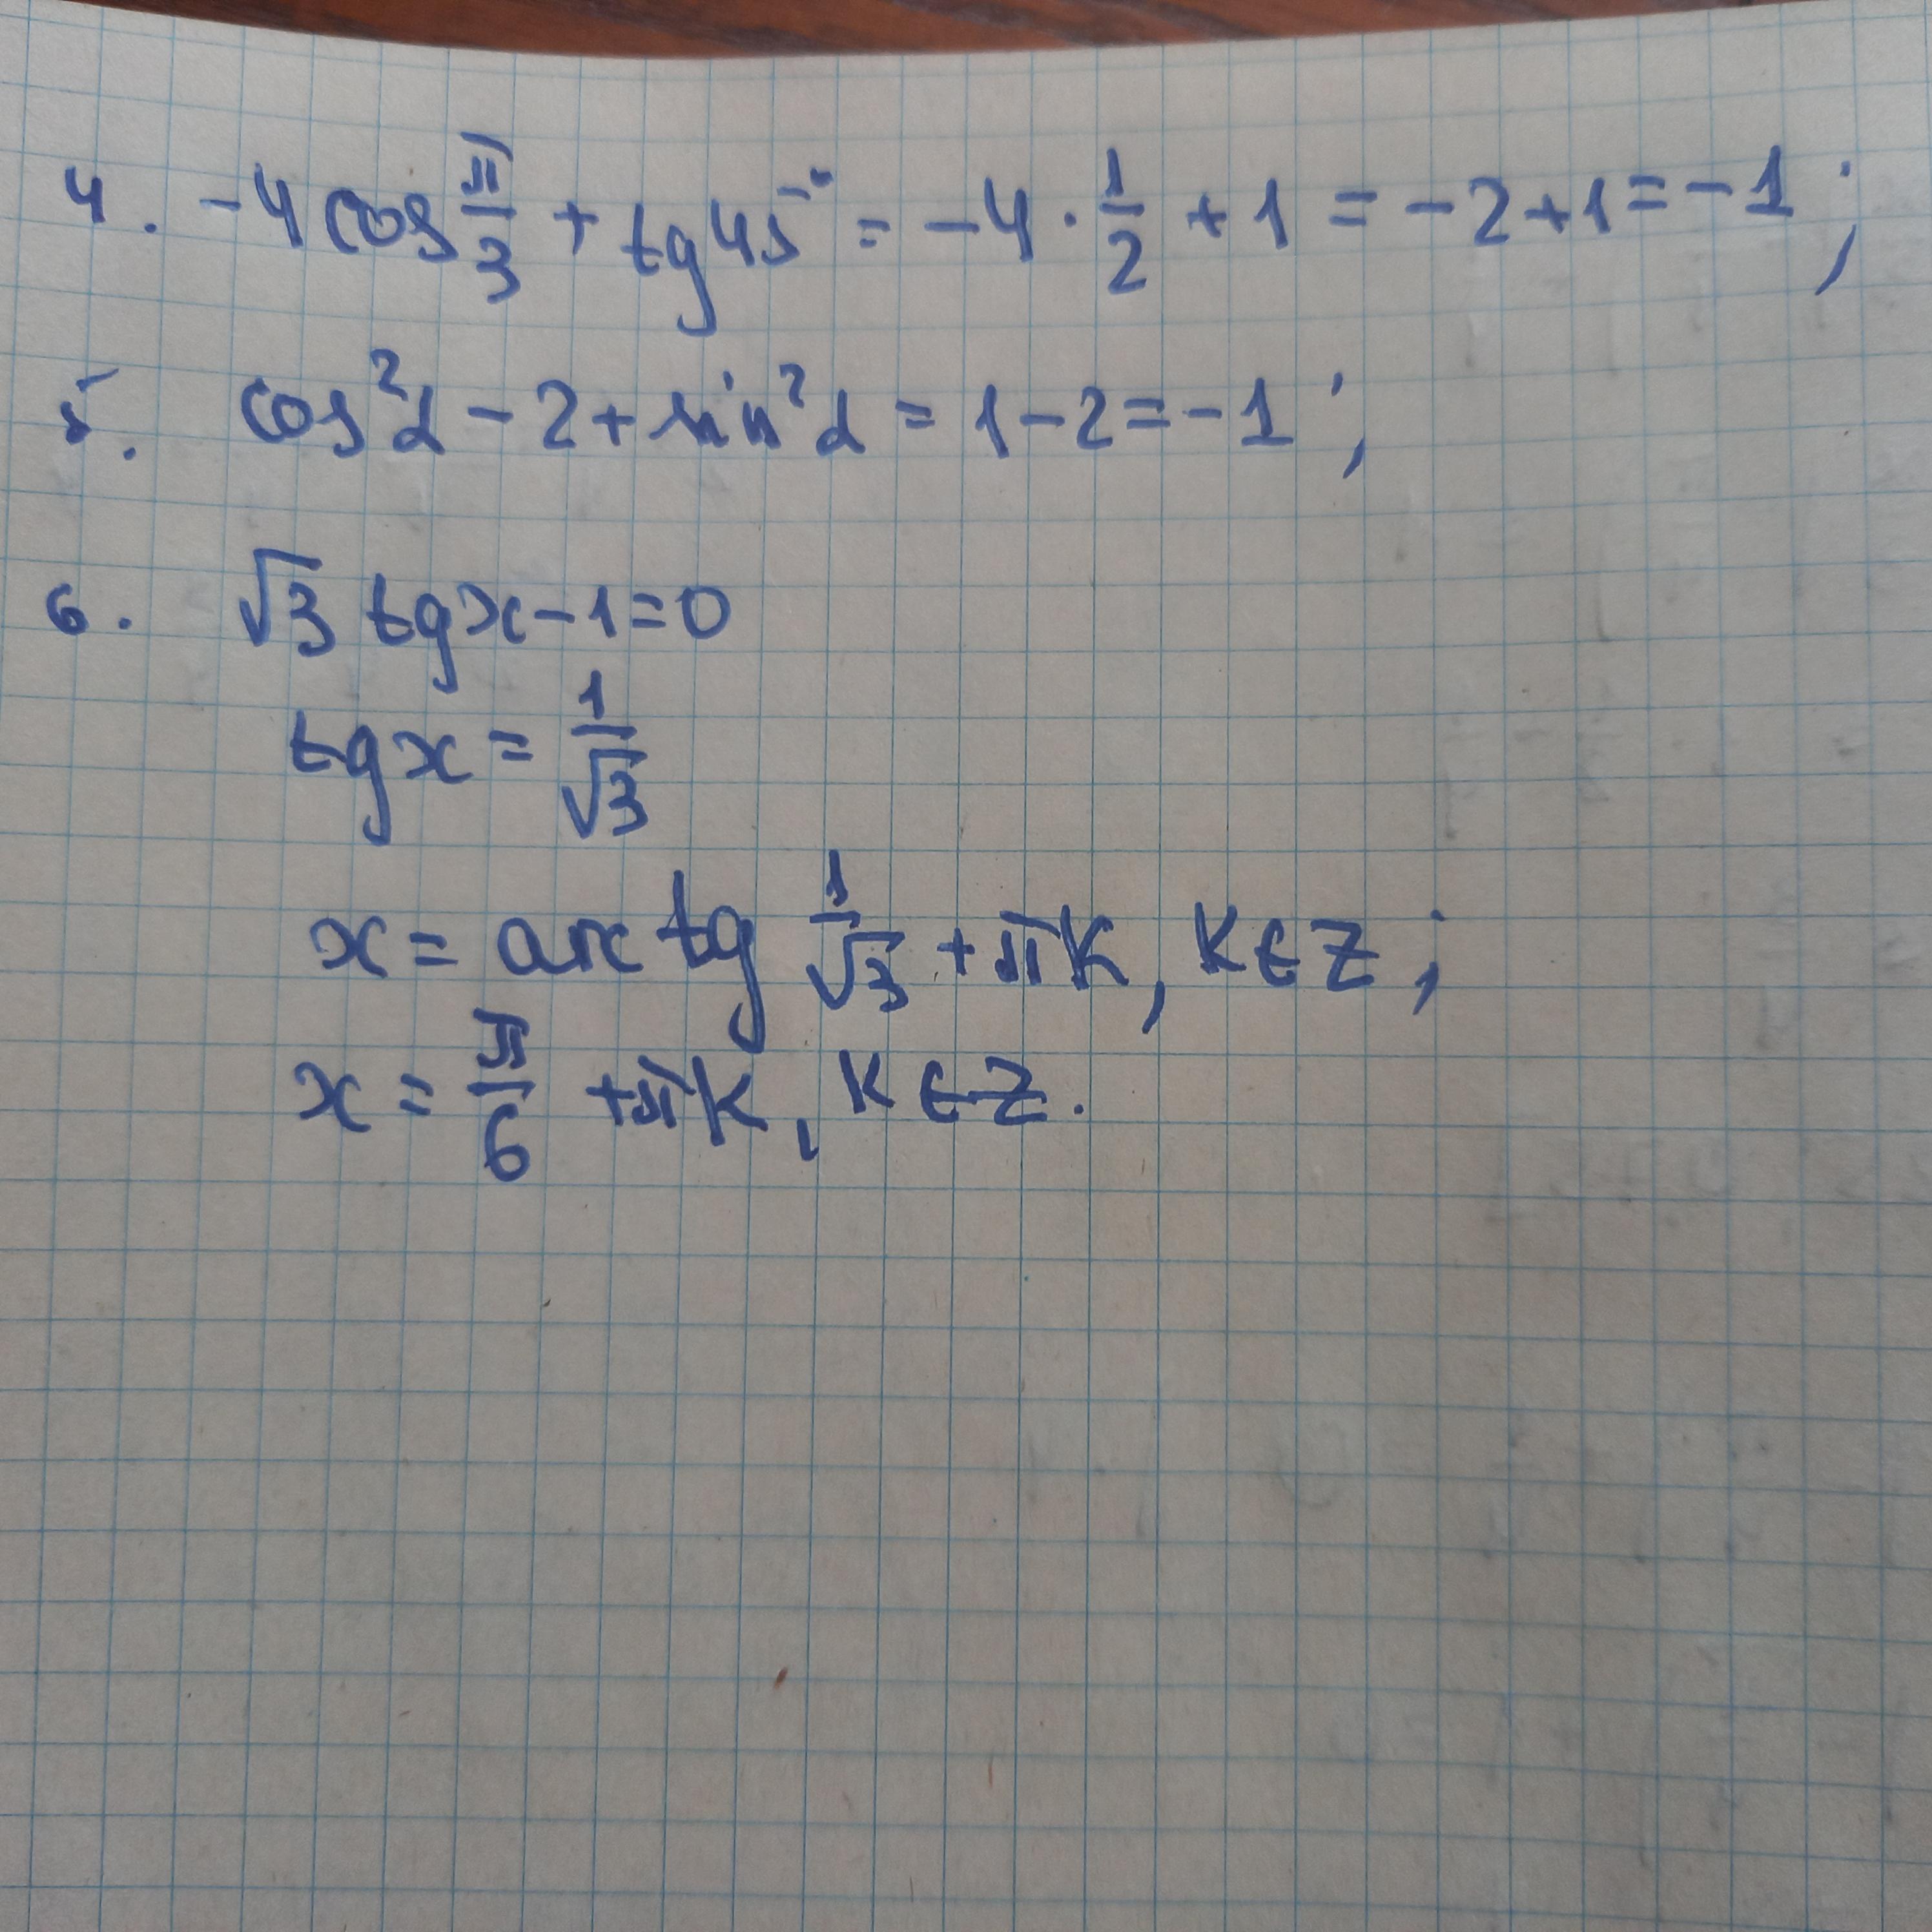 4. -4 cos π/3 + tg 45° = -4 · 1/2 + 1 = -2 + 1 = -1;
5. cos²α - 2 + sin²α = 1 - 2 = -1;
6. √3 tg x - 1 = 0
tg x = 1/√3
x = arctg 1/√3 + πk, k ∈ Z;
x = π/6 + πk, k ∈ Z.